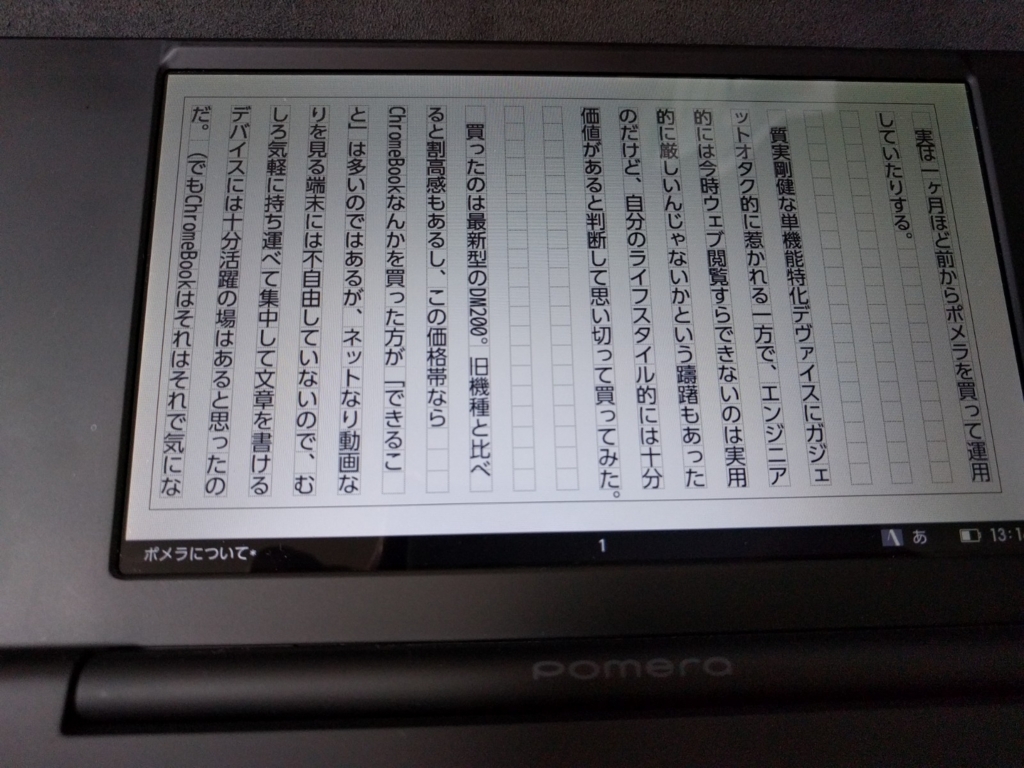 実は一ヶ月ほど前からポメラを買って運用
していたりする。
質実剛健な単機能特化デヴァイスにガジェ
ットオタク的に惹かれる一方で、エンジニア
的には今時ウェブ閲覧すらできないのは実用
的に厳しいんじゃないかという躊躇もあった
のだけど、自分のライフスタイル的には十分
価値があると判断して思い切って買ってみた。
買ったのは最新型のDM200。旧機種と比べ
ると割高感もあるし、この価格帯なら
ChromeBookなんかを買った方が「できるこ
と」は多いのではあるが、ネットなり動画な
りを見る端末には不自由していないので、む
しろ気軽に持ち運べて集中して文章を書ける
デバイスには十分活躍の場はあると思ったの
だ。(でもChromeBookはそれはそれで気にな
ポメラについて*
1
あ
pomera